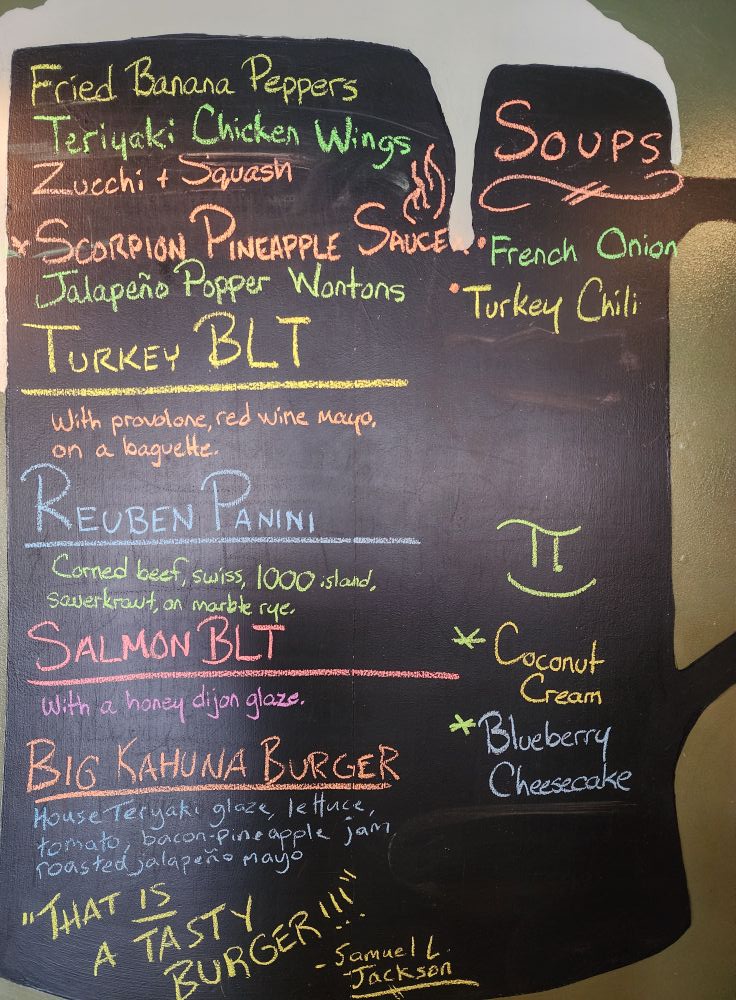 Fried Banana Peppers
Teriyaki Chicken Wings
Zucchi + Squash
SCORPION PINEAPPLE SAUCE
Jalapeño Popper Wontons
TURKEY BLT
With provolone, red wine mayo,
on a baguette.
REUBEN PANINI
Corned beef, swiss, 1000 island,
sauerkraut, on marble rye.
SALMON BLT
With a honey dijon glaze.
BIG KAHUNA BURGER
House Teryaki glaze, lettuce,
tomato, bacon-pineapple jam,
roasted jalapeño mayo
"THAT IS
A TASTY
BURGER!!!"
- Samuel L.
Jackson
SOUPS
• French Onion
• Turkey Chili
π.
* Coconut
Cream
* Blueberry
Cheesecake